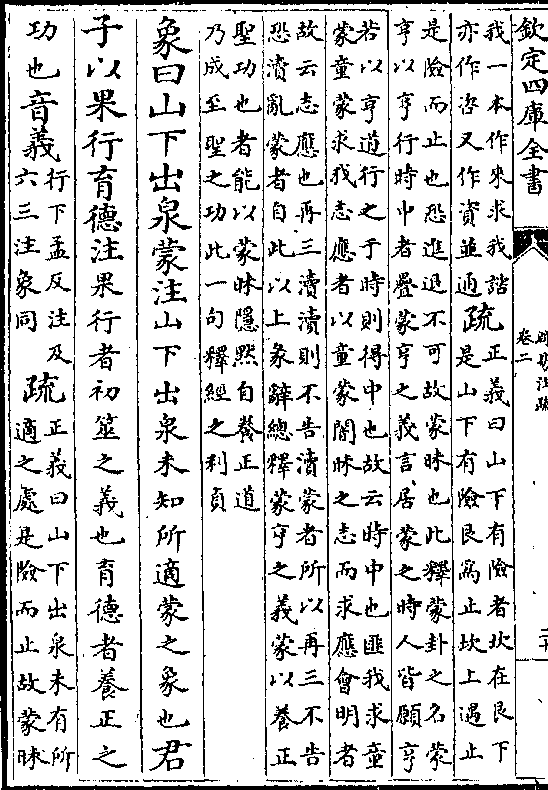 欽定四庫全書
周易注疏
卷二
二十
我一本作來求我諮
亦作咨又作資並通疏正義曰山下有險者坎在艮下
是山下有險艮為止坎上遇止
是險而止也恐進退不可故蒙昧也此釋蒙卦之名蒙
亨以亨行時中者疊蒙亨之義言居蒙之時人皆願亨
若以亨道行之于時則得中也故云時中也匪我求童
蒙童蒙求我志應者以童蒙闇昧之志而求應會明者
故云志應也再三瀆瀆則不告瀆蒙者所以再三不告
恐瀆亂蒙者自此以上彖辭總釋蒙亨之義蒙以養正
聖功也者能以蒙昧隱黙自養正道
乃成至聖之功此一句釋經之利貞
象曰山下出泉蒙注山下出泉未知所適蒙之象也君
子以果行育德注果行者初筮之義也育德者養正之
功也音義行下孟反注及
六三注象同疏正義曰山下出泉未有所
適之處是險而止故蒙昧